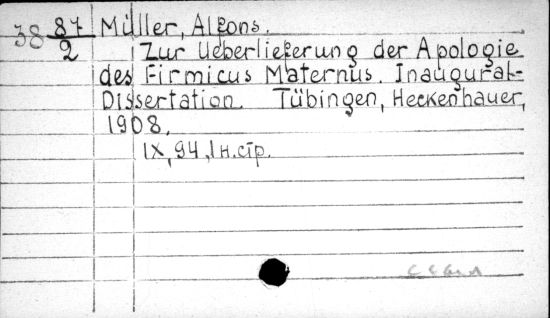 38 87/2 Müller, Alfons.
Zur Ueberlieferung der Apologie
des Firmicus Maternus. Inaugural-
Dissertation. Tübingen, Heckenhauer,
1908.
IX, 94, 1 н.стр.